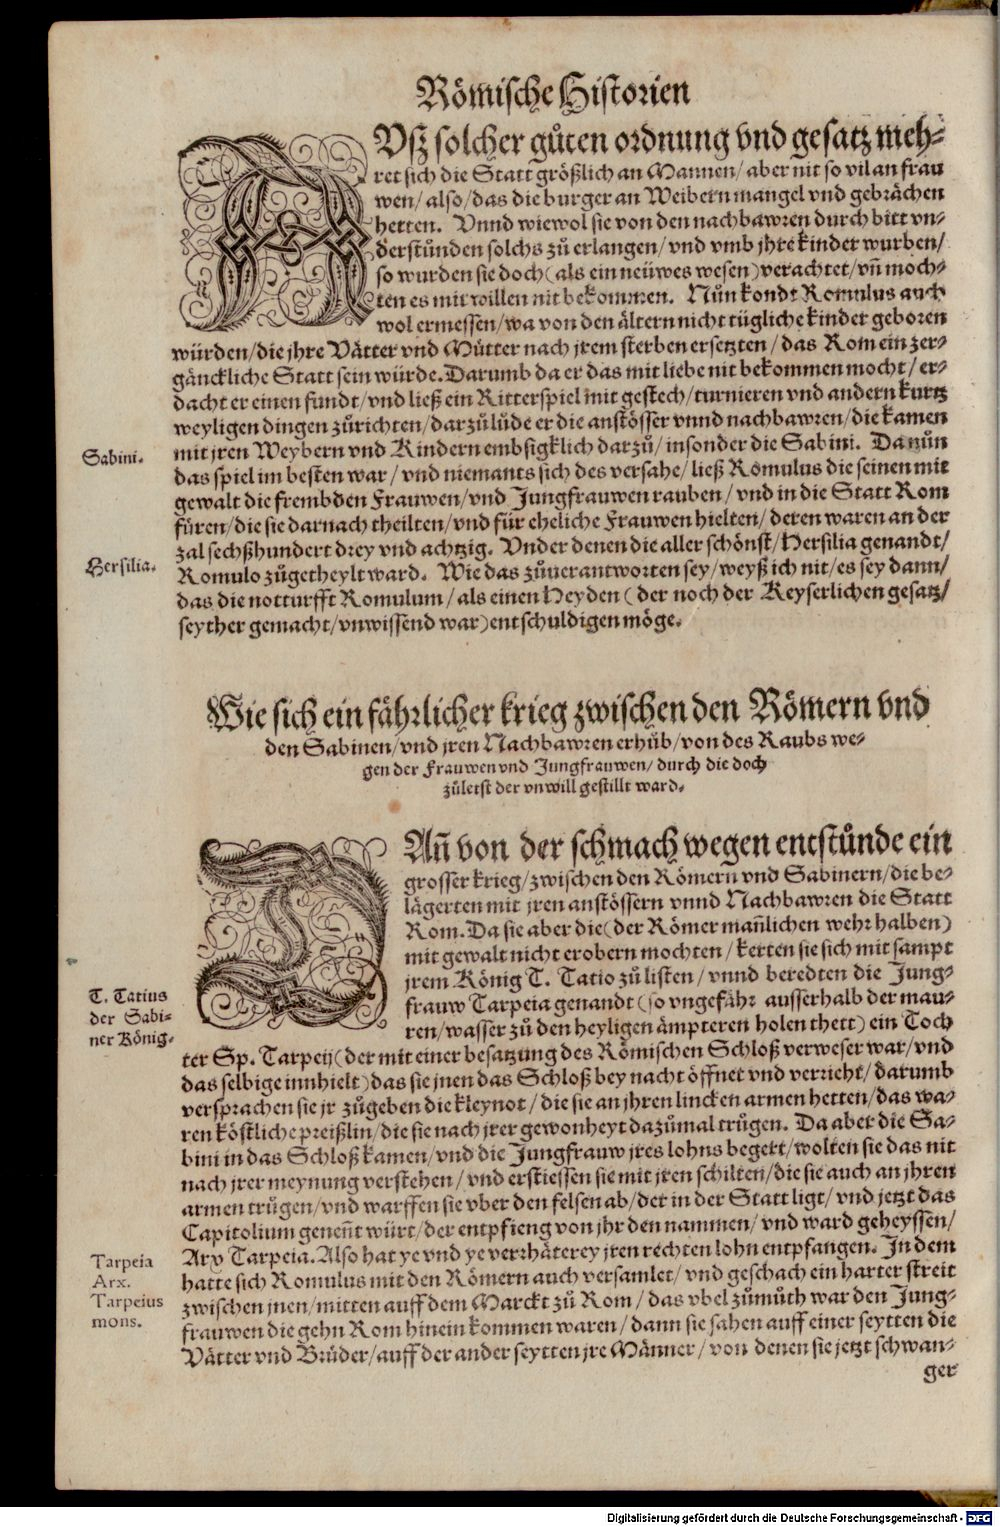 Römische Historien
AUsz solcher gůten ordnung vnd gesatz meh-
ret sich die Statt größlich an Mannen/ aber nit so vil an frau
wen/ also/ das die burger an Weibern mangel vnd gebrächen
hetten. Vnnd wiewol sie von den nachbawren durch bitt vn-
derstůnden solchs zů erlangen/ vnd vmb jhre kinder wurben/
so wurden sie doch (als ein neüwes wesen) verachtet/ vn̄ moch-
ten es mit willen nit bekommen. Nůn kondt Romulus auch
wol ermessen/ wa von den ältern nicht tügliche kinder geboren
würden/ die jhre Vätter vnd Mütter nach jrem sterben ersetzten/ das Rom ein zer-
gänckliche Statt sein würde. Darumb da er das mit liebe nit bekommen mocht/ er-
dacht er einen fundt/ vnd ließ ein Ritterspiel mit gestech/ turnieren vnd andern kurtz
weyligen dingen zůrichten/ darzů lůde er die anstösser vnnd nachbawren/ die kamen
mit jren Weybern vnd Kindern embsigklich darzů/ insonder die Sabini. Da nůn
das spiel im besten war/ vnd niemants sich des versahe/ ließ Romulus die seinen mit
gewalt die frembden Frauwen/ vnd Jungfrauwen rauben/ vnd in die Statt Rom
füren/ die sie darnach theilten/ vnd für eheliche Frauwen hielten/ deren waren an der
zal sechßhundert drey vnd achtzig. Vnder denen die aller schönst/ Hersilia genandt/
Romulo zůgetheylt ward. Wie das zůuerantworten sey/ weyß ich nit/ es sey dann/
das die notturfft Romulum/ als einen Heyden (der noch der Keyserlichen gesatz/
seyther gemacht/ vnwissend war) entschuldigen möge.
Sabini.
Hersilia.
Wie sich ein fährlicher krieg zwischen den Römern vnd
den Sabinen/ vnd jren Nachbawren erhůb/ von des Raubs we-
gen der Frauwen vnd Jungfrauwen/ durch die doch
zůletst der vnwill gestillt ward.
DAn̄ von der schmach wegen entstůnde ein
grosser krieg/ zwischen den Römern vnd Sabinern/ die be-
lägerten mit jren anstössern vnnd Nachbawren die Statt
Rom. Da sie aber die (der Römer man̄lichen wehr halben)
mit gewalt nicht erobern mochten/ kerten sie sich mit sampt
jrem König T. Tatio zů listen/ vnnd beredten die Jung-
frauw Tarpeia genandt (so vngefähr ausserhalb der mau-
ren/ wasser zů den heyligen ämpteren holen thett) ein Toch
ter Sp. Tarpeij (der mit einer besatzung des Römischen Schloß verweser war/ vnd
das selbige innhielt) das sie jnen das Schloß bey nacht öffnet vnd verrieht/ darumb
versprachen sie jr zůgeben die kleynot/ die sie an jhren lincken armen hetten/ das wa-
ren köstliche preißlin/ die sie nach jrer gewonheyt dazůmal trůgen. Da aber die Sa-
bini in das Schloß kamen/ vnd die Jungfrauw jres lohns begert/ wolten sie das nit
nach jrer meynung verstehen/ vnd erstiessen sie mit jren schilten/ die sie auch an jhren
armen trůgen/ vnd warffen sie vber den felsen ab/ der in der Statt ligt/ vnd jetzt das
Capitolium genen̄t würt/ der entpfieng von jhr den nammen/ vnd ward geheyssen/
Arx Tarpeia. Also hat ye vnd ye verrhäterey jren rechten lohn entpfangen. In dem
hatte sich Romulus mit den Römern auch versamlet/ vnd geschach ein harter streit
zwischen jnen/ mitten auff dem Marckt zů Rom/ das vbel zůmůth war den Jung-
frauwen die gehn Rom hinein kommen waren/ dann sie sahen auff einer seytten die
Vätter vnd Brüder/ auff der ander seytten jre Männer/ von denen sie jetzt schwan-
ger
T. Tatius
der Sabi-
ner König.
Tarpeia
Arx.
Tarpeius
mons.
Digitalisierung gefördert durch die Deutsche Forschungsgemeinschaft - DFG